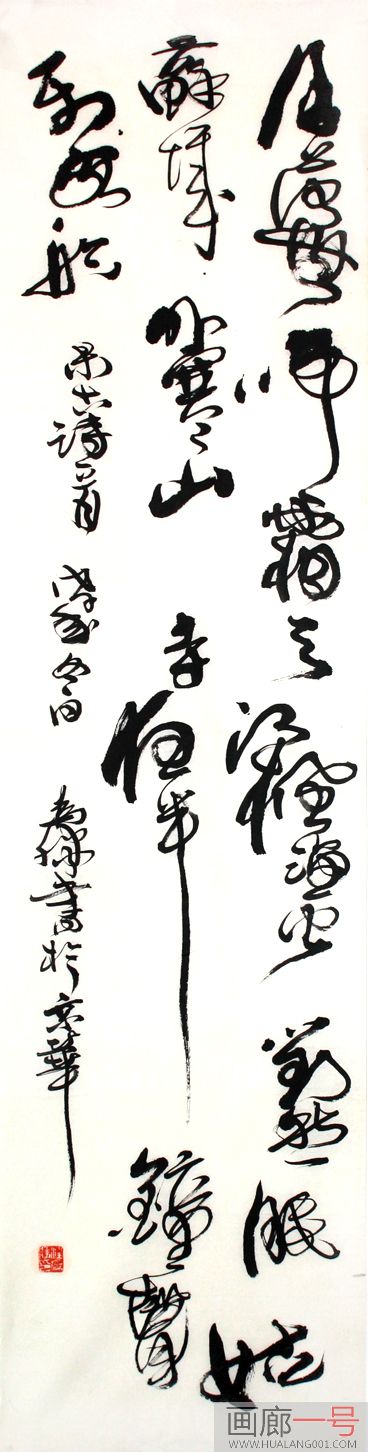 月落烏啼霜滿天江楓漁火對愁眠姑
蘇城外寒山寺夜半鐘聲
到客船
录古詩一首
書於京華
画廊一号
WWW.HUALANG001.COM